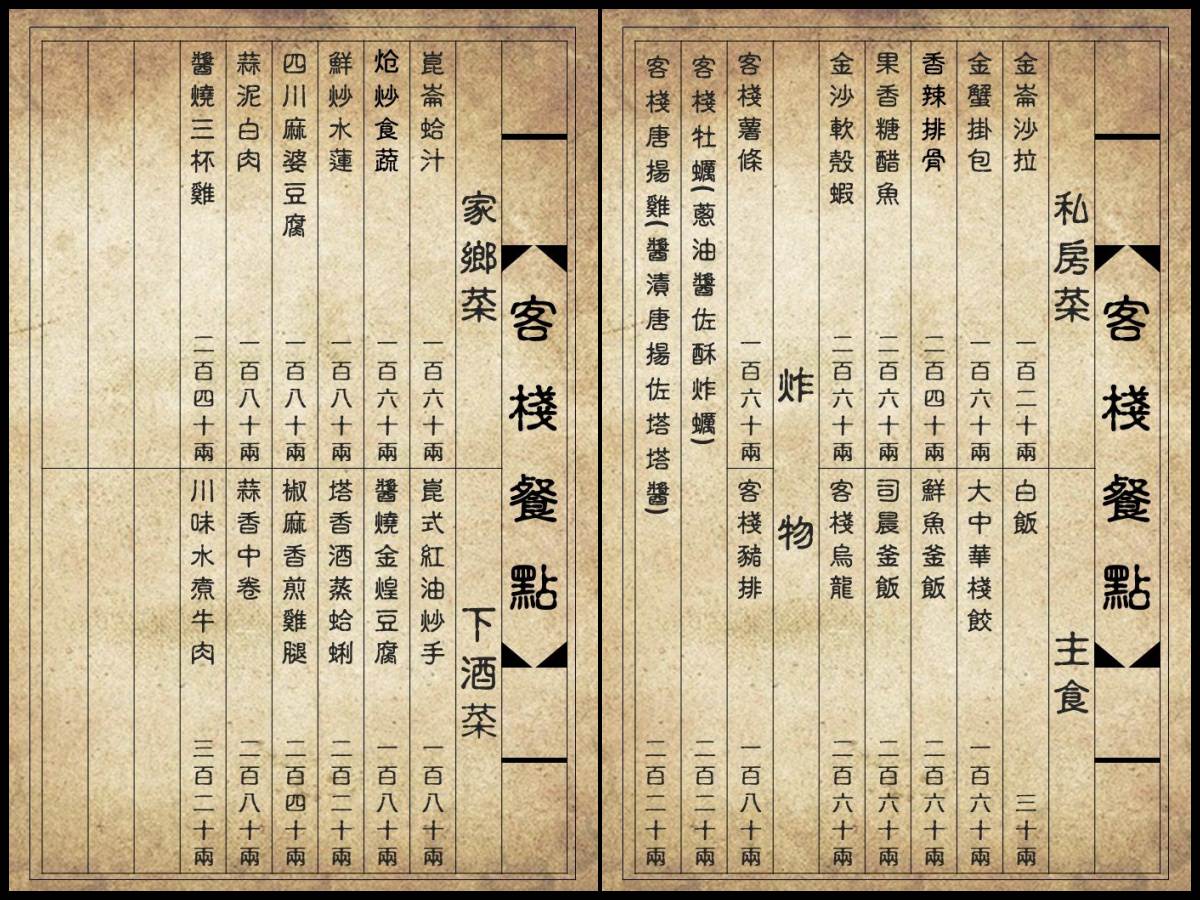 客棧餐點
私房菜
金崙沙拉 一百二十兩
金蟹掛包 一百六十兩
香辣排骨 二百四十兩
果香糖醋魚 二百六十兩
金沙軟殼蝦 二百六十兩
主食
白飯 三十兩
大中華棧餃 一百六十兩
鮮魚釜飯 二百六十兩
司晨釜飯 二百六十兩
客棧烏龍 二百六十兩
炸物
客棧薯條 一百六十兩
客棧豬排 一百八十兩
客棧牡蠣(蔥油醬佐酥炸蠣) 二百二十兩
客棧唐揚雞(醬漬唐揚佐塔塔醬) 二百二十兩
客棧餐點
家鄉菜
崑崙蛤汁 一百六十兩
炝炒食蔬 一百六十兩
鮮炒水蓮 一百八十兩
四川麻婆豆腐 一百八十兩
蒜泥白肉 一百八十兩
醬燒三杯雞 二百四十兩
下酒菜
崑式紅油炒手 一百八十兩
醬燒金煌豆腐 一百八十兩
塔香酒蒸蛤蜊 二百二十兩
椒麻香煎雞腿 二百四十兩
蒜香中卷 二百八十兩
川味水煮牛肉 三百二十兩